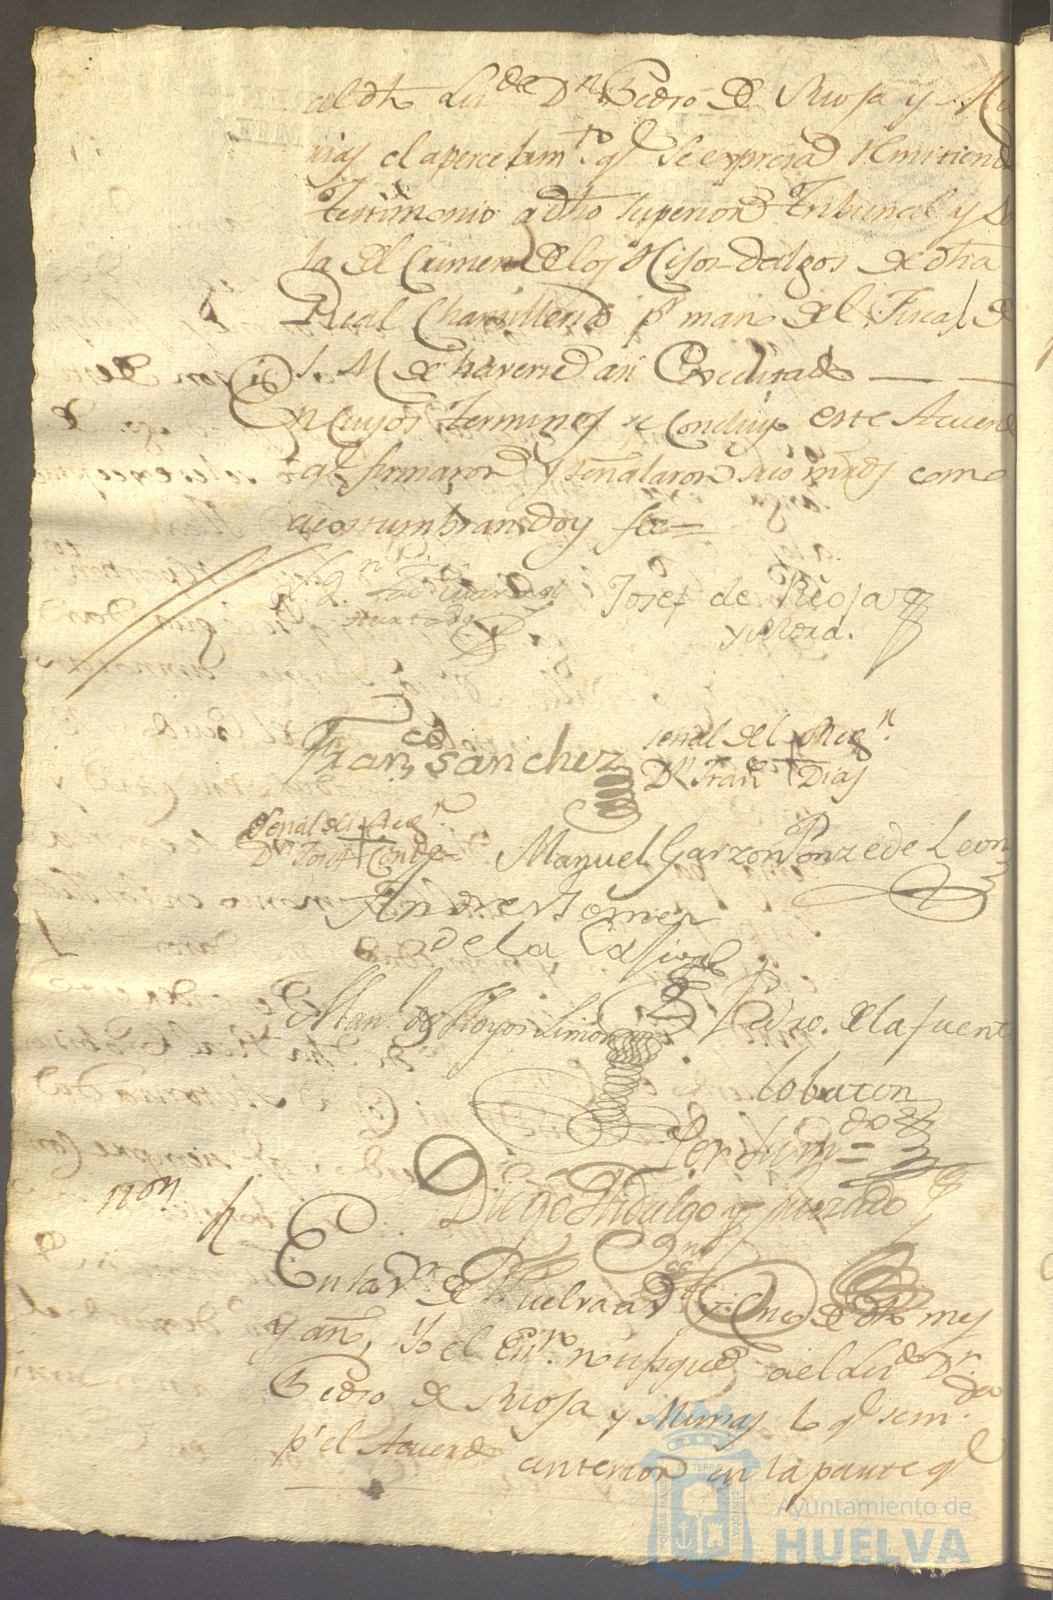 al dho Licde Dn Pedro de Rioja y Mu
nias el apercebimto qe se expresa remitiend
testimonio a dho superior Tribunal y Sa
la del Crimen de los Hijos-dalgos de dha
Real Chansilleria pr mano del Fiscal de
S. M. de haverse asi executado
En cuyos terminos se concluyo este Acuerd
qe firmaron y señalaron sus mrds como
acostumbran doy fee=
Hurtado
Josef de Rioja
y Mora.
Franco Sanchez
señal del Regr.
Dn Franco + Dias
Señal del Regr.
Dn Josef + Conde
Manuel Garzon Ponze de Leon
Andres Gomez
de la
Manl de Hoyos Limon
Pedro. de la fuente
lobaton
Per Sindo =
Diego Hidalgo y jurado
Non
En la Va de Huelva a Vte y Cinco de dho mes
y año, Yo el Essno notifiqué a el Licdo Dn
Pedro de Rioja y Munias lo qe se mda
pr el Acuerdo anterior en la parte qe
Ayuntamiento de
HUELVA